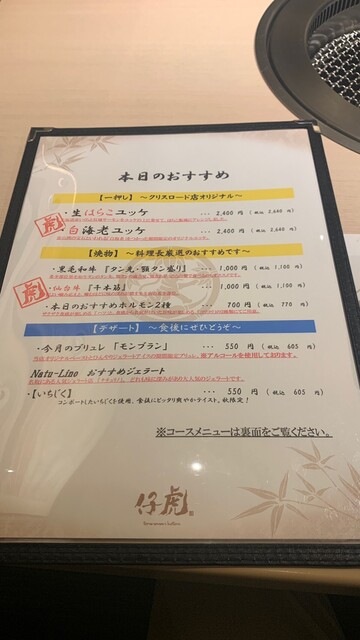 本日のおすすめ
【一押し】 〜クリスロード店オリジナル〜
・生はらこユッケ ... 2,400 円 (税込 2,640 円)
虎
・白海老ユッケ ... 2,400 円 (税込 2,640 円)
【焼物】 〜料理長厳選のおすすめです〜
・黒毛和牛 『タン先・顎タン盛り』 ... 1,000 円 (税込 1,100 円)
虎
・仙台牛 『千本筋』 ... 1,000 円 (税込 1,100 円)
・本日のおすすめホルモン2種 ... 700 円 (税込 770 円)
【デザート】 〜食後にぜひどうぞ〜
・今月のブリュレ 「モンブラン」 ... 550 円 (税込 605 円)
※アルコールを使用しております。
Natu-Lino おすすめジェラート
・【いちじく】 ... 550 円 (税込 605 円)
コンポートしたいちじくを使用、食後にピッタリ爽やかテイスト、秋限定！
※コースメニューは裏面をご覧ください。
仔虎